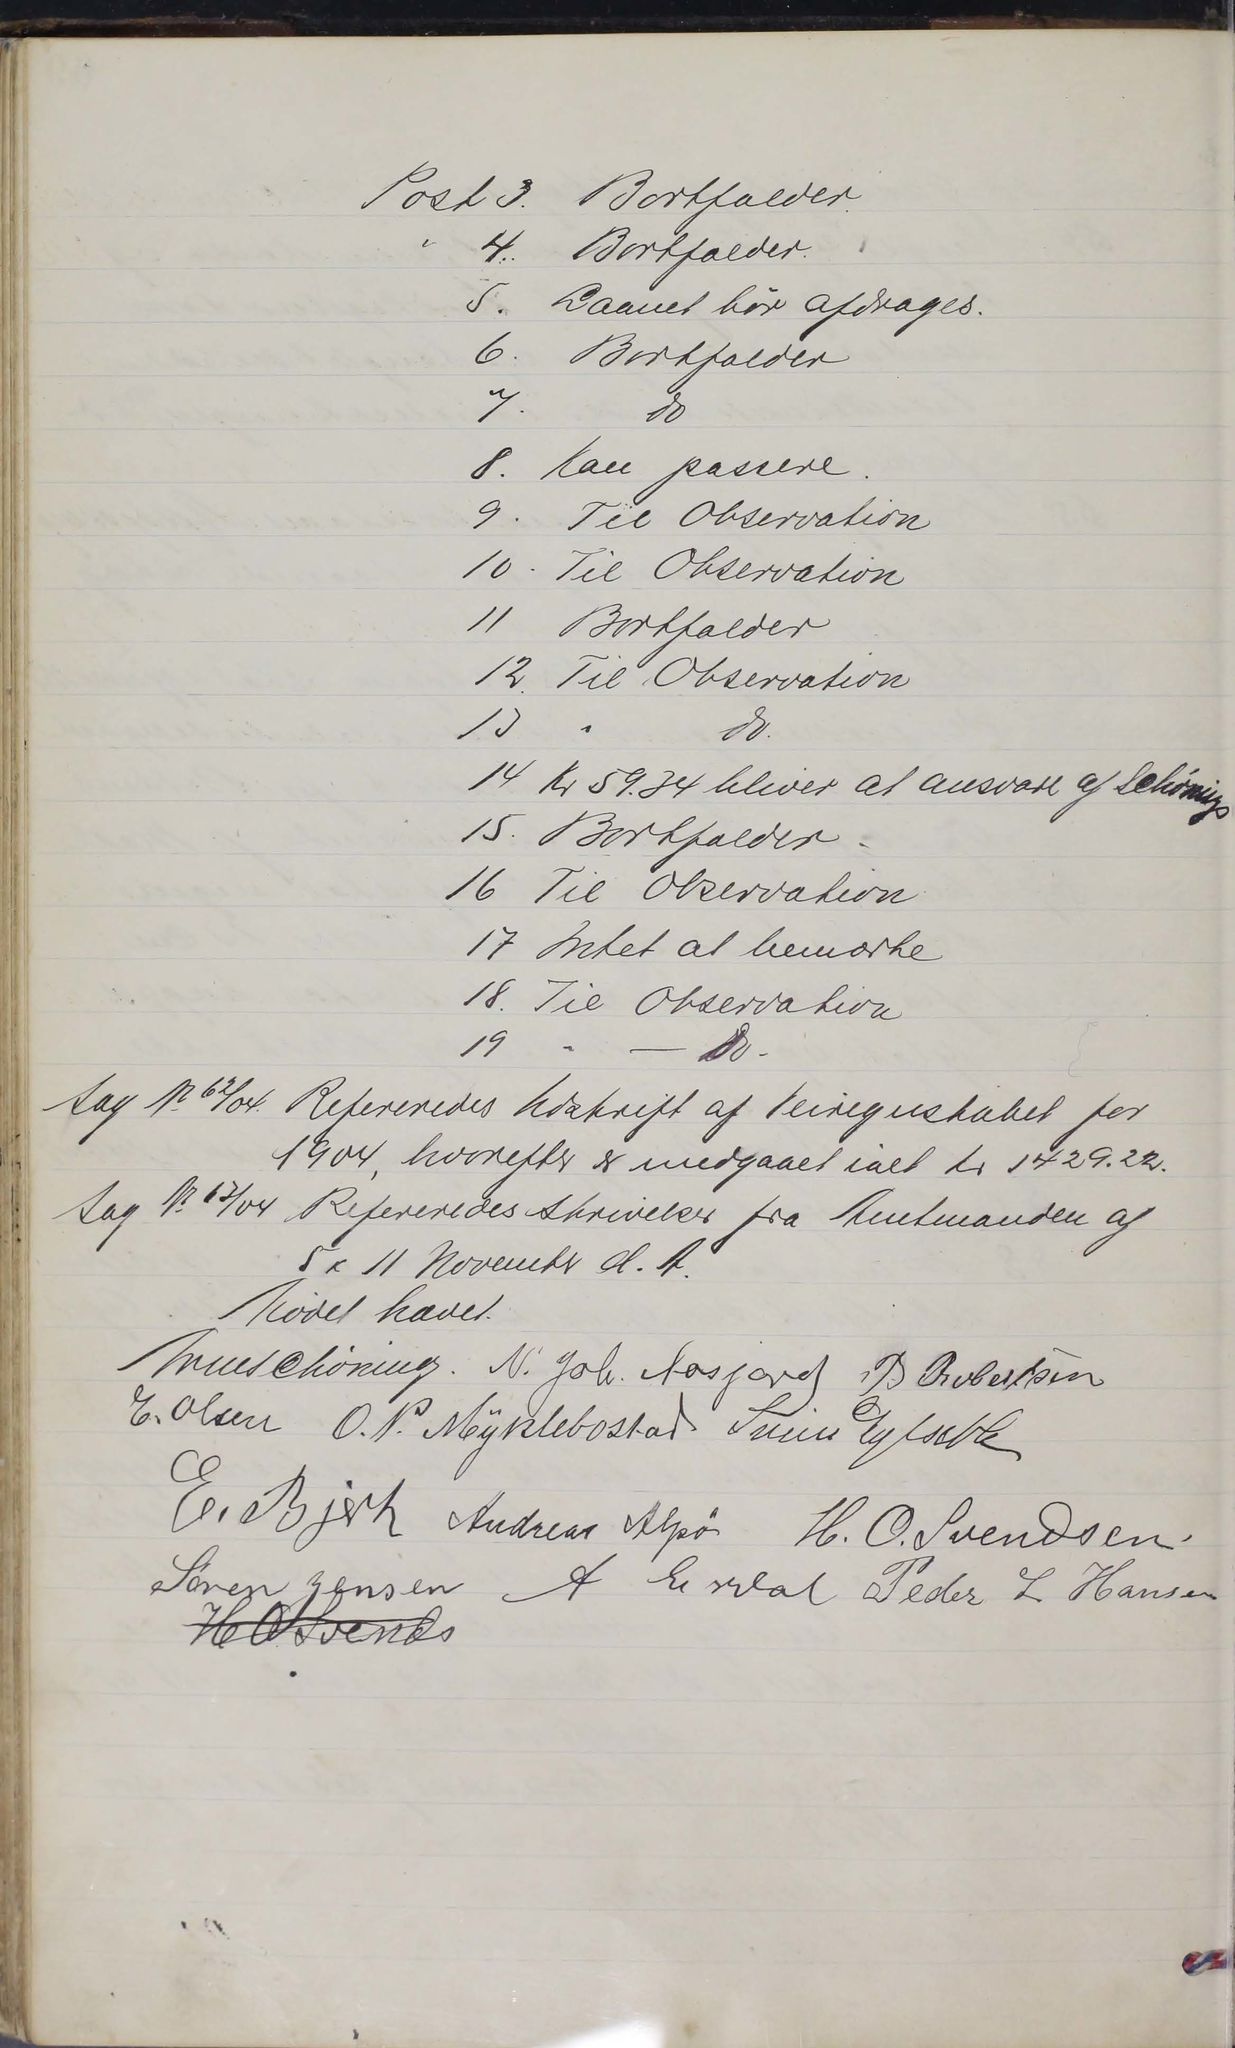 Post 3. Bortfalder.
" 4. Bortfalder.
5. Laanet bör afdrages.
6. Bortfalder
7. do
8. Kan passere.
9. Til Observation
10. Til Observation
11 Bortfalder
12. Til Observation
13 " do.
14 Kr 59.34 bliver at ansvare af Schönings
15. Bortfalder.
16 Til Observation
17 Intet at bemærke
18. Til Observation
19 " — Do.
Sag No 62/04. Refereredes Udskrift af Veiregnskabet for
1904, hvorefter er medgaaet ialt kr 1429.22.
Sag No 63/04 Refereredes Skrivelser fra Amtmanden af
5 & 11 November d. A.
Mödet hævet.
Schöning. N. Joh. Nesjord B Robertsen
E. Olsen O. P. Myklebostad
E. Bjerk Andreas Alpö H. O. Svendsen.
Sören Jensen A Peder L Hansen
H O Svends